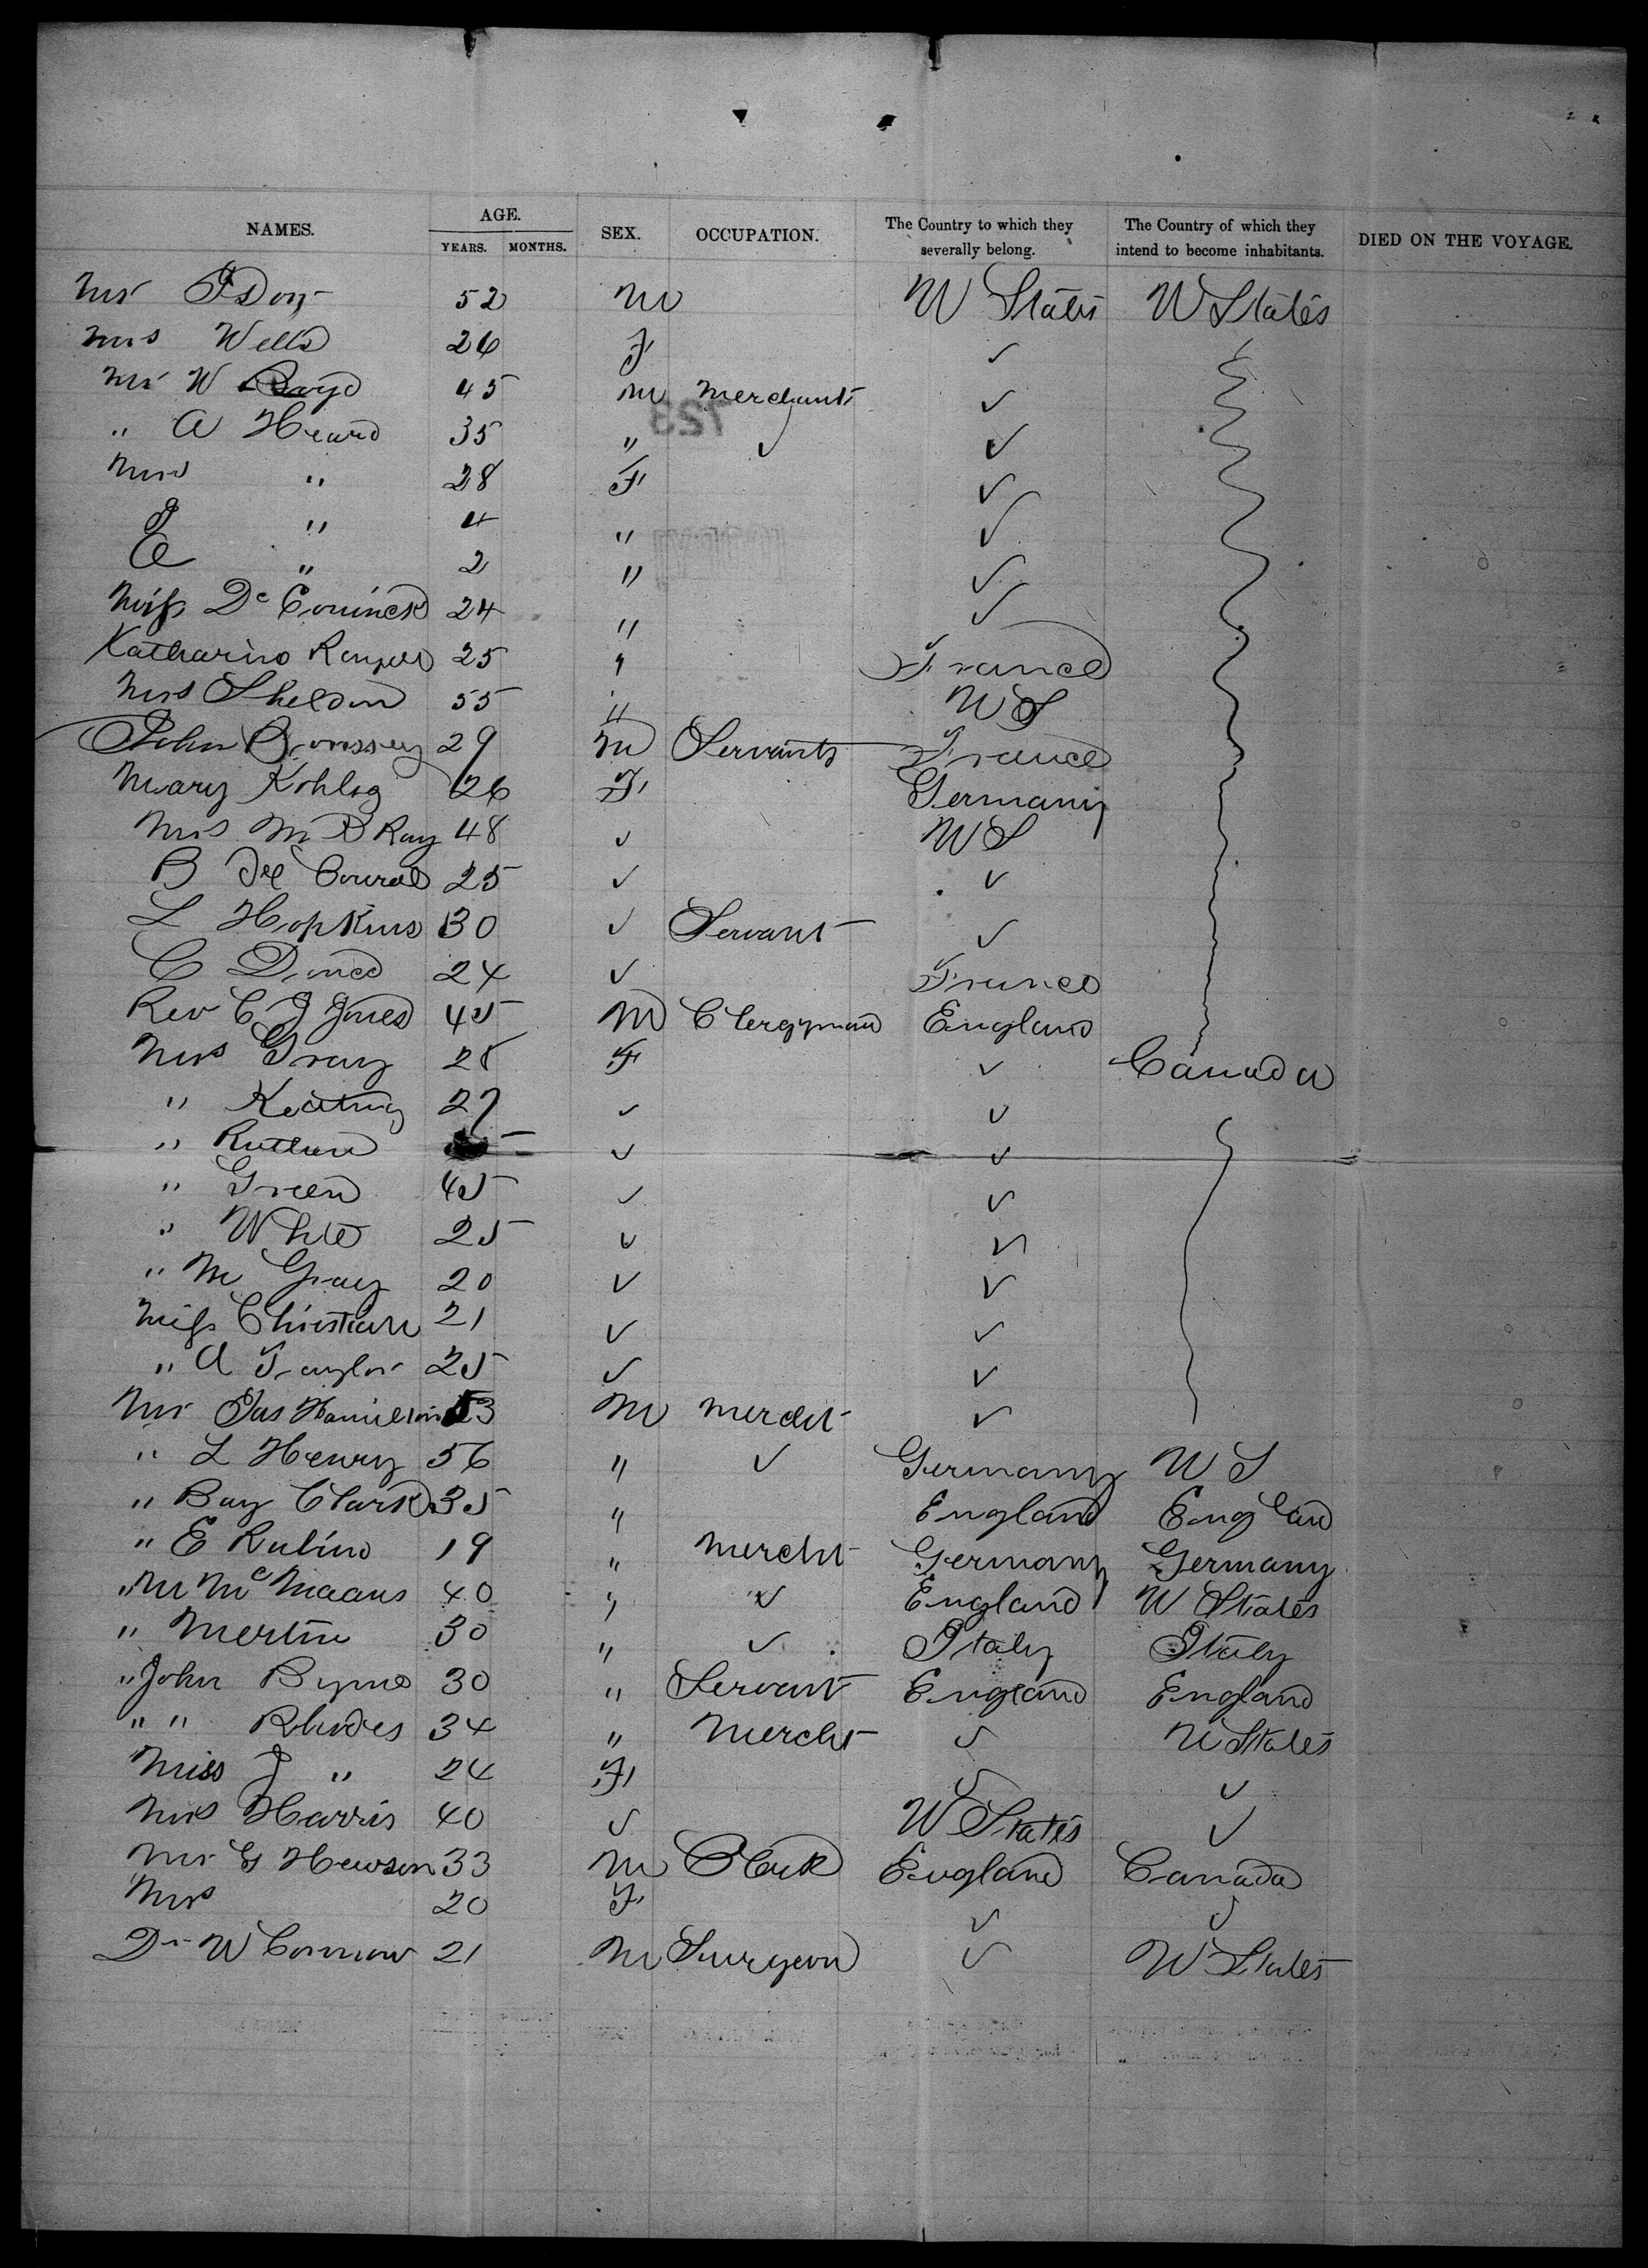 NAMES. AGE. YEARS. MONTHS. SEX. OCCUPATION. The Country to which they severally belong. The Country of which they intend to become inhabitants. DIED ON THE VOYAGE.
Mr 52 M U States U States
Mrs Wells 26 F ✓
Mr W Boyd 45 M Merchant ✓
723
" A Heard 35 " ✓ ✓
Mrs " 28 F ✓
J " 4 " ✓
E " 2 " ✓
Miss De Coninck 24 " ✓
Katharine 25 " France
Mrs Sheldon 55 " U S
John 29 M Servants France
Mary Kohlig 26 F Germany
Mrs M B Ray 48 ✓ U S
B De 25 ✓ ✓
L Hopkins 30 ✓ Servant ✓
C 24 ✓ France
Rev C J Jones 45 M Clergyman England
Mrs Gray 28 F ✓ Canada
" Keating 27 ✓ ✓
" ✓ ✓
" Green 45 ✓ ✓
" White 25 ✓ ✓
" M Gray 20 ✓ ✓
Miss Christian 21 ✓ ✓
" A Taylor 25 ✓ ✓
Mr Jas Hamilton 53 M Mercht ✓
" L Henry 56 " ✓ Germany U S
" Clark 35 " England England
" E Rubino 19 " Mercht Germany Germany
" 40 " ✓ England U States
" Mertin 30 " ✓ Italy Italy
" John Byrne 30 " Servant England England
" " Rhodes 34 " Mercht ✓ U States
Miss J " 24 F ✓ ✓
Mrs Harris 40 ✓ U States ✓
Mr G Hewson 33 M Clerk England Canada
Mrs 20 F ✓ ✓
Dr W 21 M Surgeon ✓ U States